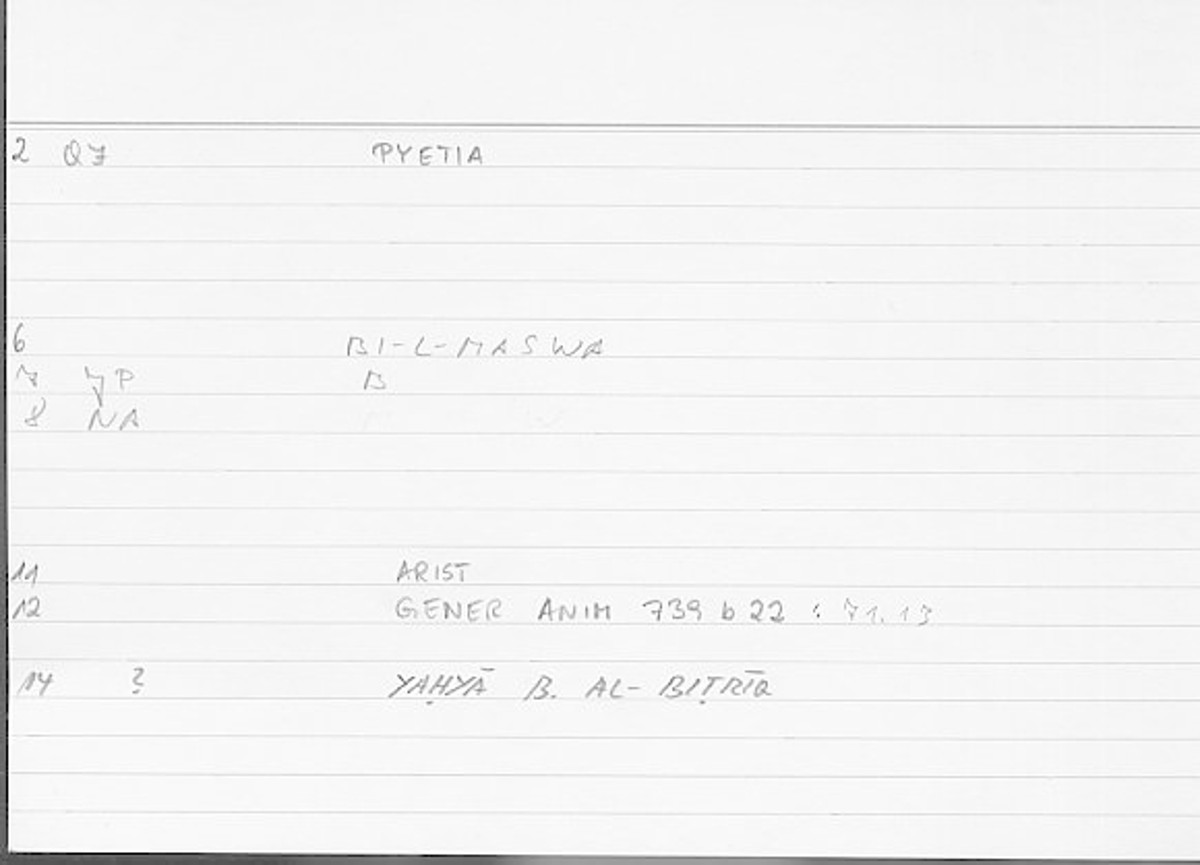 2 QJ PYETIA
6 BI-L-MASWA
7 JP B
8 NA
11 ARIST
12 GENER ANIM 739 b 22 : 71.13
14 ? YAḤYĀ B. AL-BIṬRĪQ